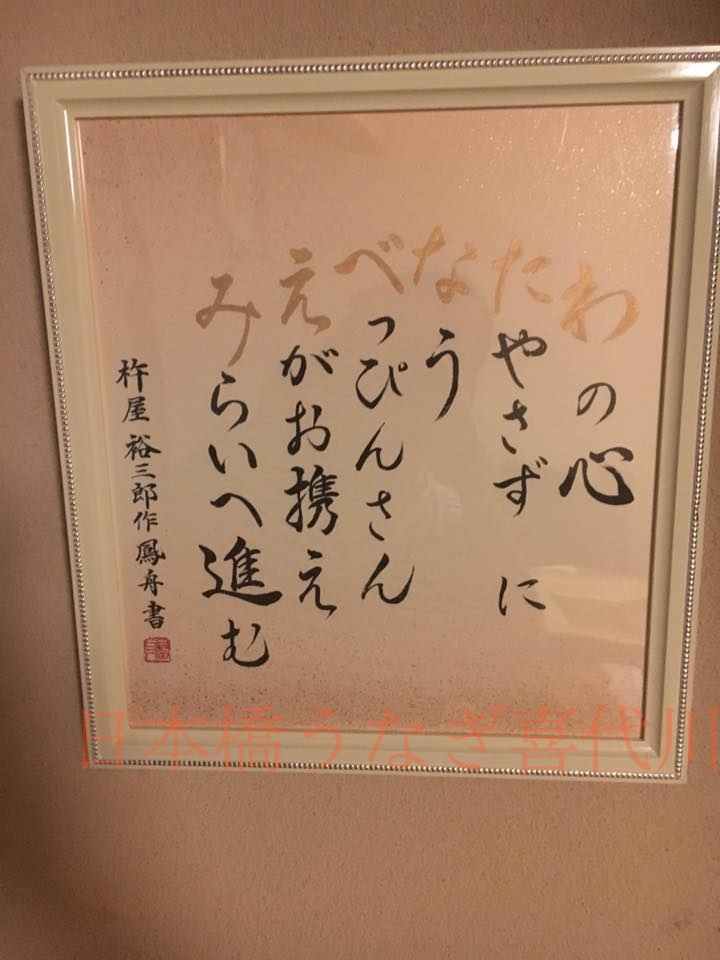 わの心
たやさず に
なう
べっぴんさん
えがお携え
みらいへ進む
杵屋 裕三郎作 鳳舟書
日本橋うなぎ喜代川